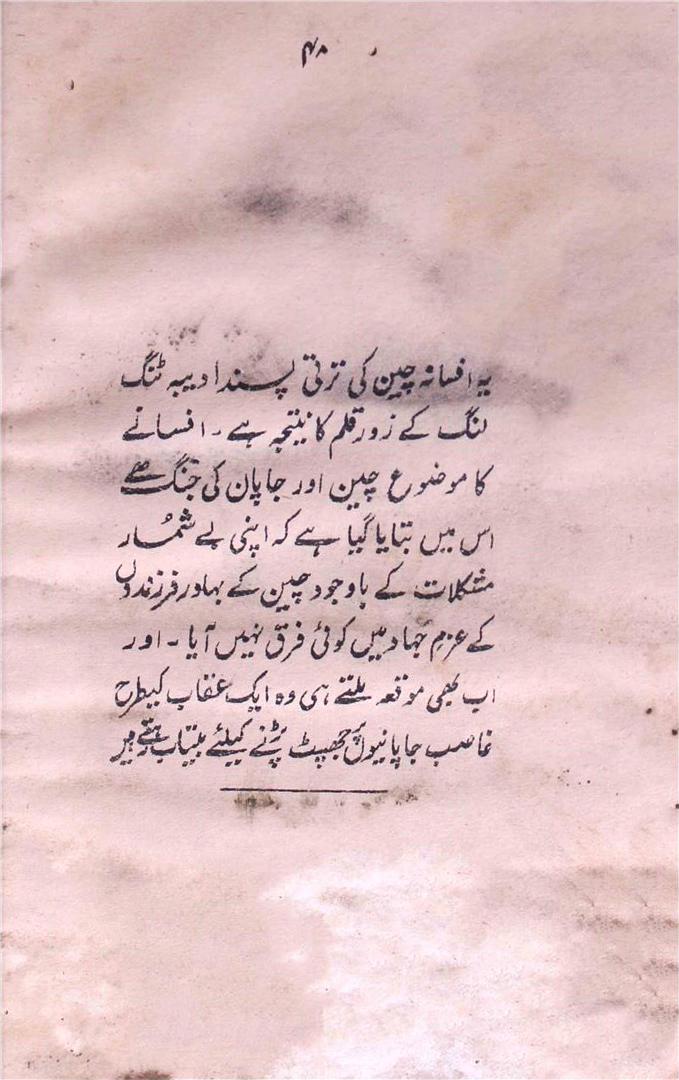 ۴۸
یہ افسانہ چین کی ترقی پسند ادیبہ ٹنگ
لنگ کے زور قلم کا نتیجہ ہے۔ افسانے
کا موضوع چین اور جاپان کی جنگ ہے
اس میں بتایا گیا ہے کہ اپنی بے شمُار
مشکلات کے باوجود چین کے بہادر فرزندوں
کے عزمِ جہاد میں کوئی فرق نہیں آیا۔ اور
اب بھی موقعہ ملتے ہی وہ ایک عقاب کیطرح
غاصب جاپانیوں پر جھپٹ پڑنے کیلئے بیتاب رہتے ہیں